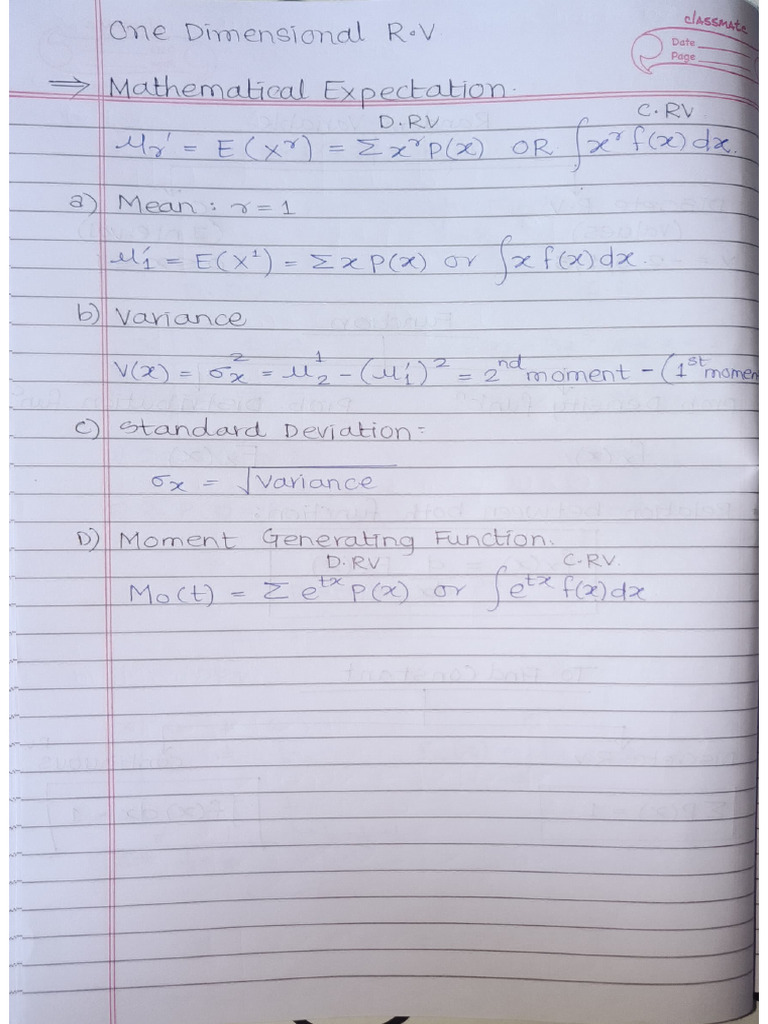 One Dimensional R.V.
classmate
Date
Page
⇒ Mathematical Expectation.
D.RV C.RV
μr' = E(X^r) = Σ x^r P(x) OR ∫x^r f(x) dx.
a) Mean : r = 1
μ1' = E(X^1) = Σ x P(x) or ∫x f(x) dx.
b) Variance
V(x) = σx^2 = μ2^1 - (μ1')^2 = 2nd moment - (1st momen
c) Standard Deviation =
σx = √Variance
D) Moment Generating Function.
D.RV C-RV.
Mo(t) = Σ e^tx P(x) or ∫e^tx f(x) dx